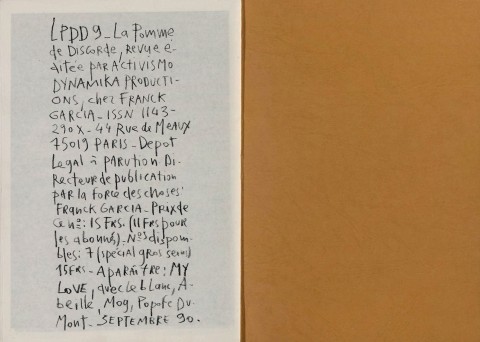 LPDD9_La Pomme
de Discorde, revue é-
ditée par Activismo
Dynamika Producti-
ons, chez Franck
Garcia_ISSN 1143-
290X_44 Rue de Meaux
75019 PARIS_Depot
Legal à parution Di-
recteur de publication
par la force des choses:
Franck Garcia_Prix de
ce nº: 15 Frs. (11 Frs pour
les abonnés)_Nos dispon-
ibles: 7 (spécial gros seins)
15 Frs_A paraître: MY
LOVE, avec le blanc, A-
beille, Mog, Popote Du-
Mont_SEPTEMBRE 90.